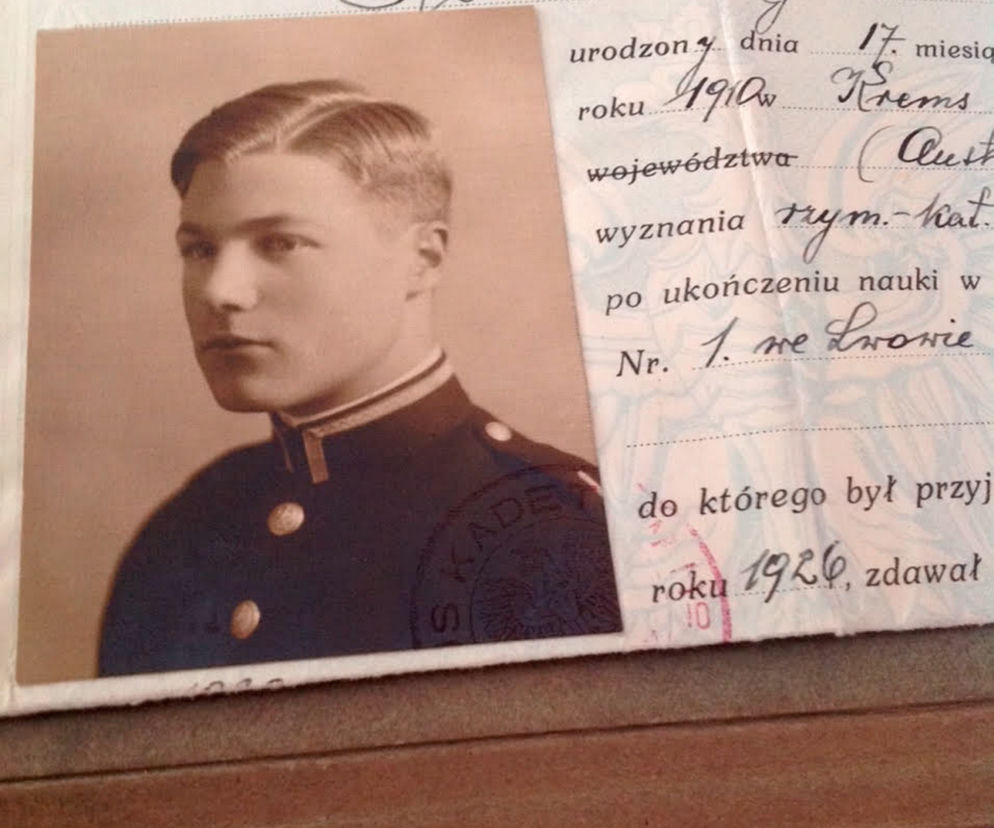 urodzony dnia 17. miesią
roku 1910 w Krems
województwa (Aust
wyznania rzym.-kat.
po ukończeniu nauki w
Nr. 1. we Lwowie
do którego był przyj
roku 1926, zdawał
S KADET
10